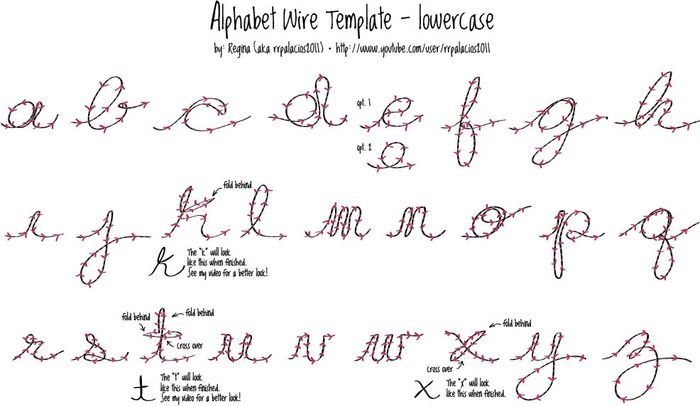 Alphabet Wire Template - lowercase
by: Regina (aka rrpalacios2011) • http://www.youtube.com/user/rrpalacios2011
opt. 1
a b c d e f g h
opt. 2
e
fold behind
i j k l m n o p q
The "k" will look
like this when finished.
See my video for a better look!
k
fold behind
fold behind
fold behind
r s t u v w x y z
cross over
cross over
The "t" will look
like this when finished.
See my video for a better look!
t
The "x" will look
like this when finished.
x